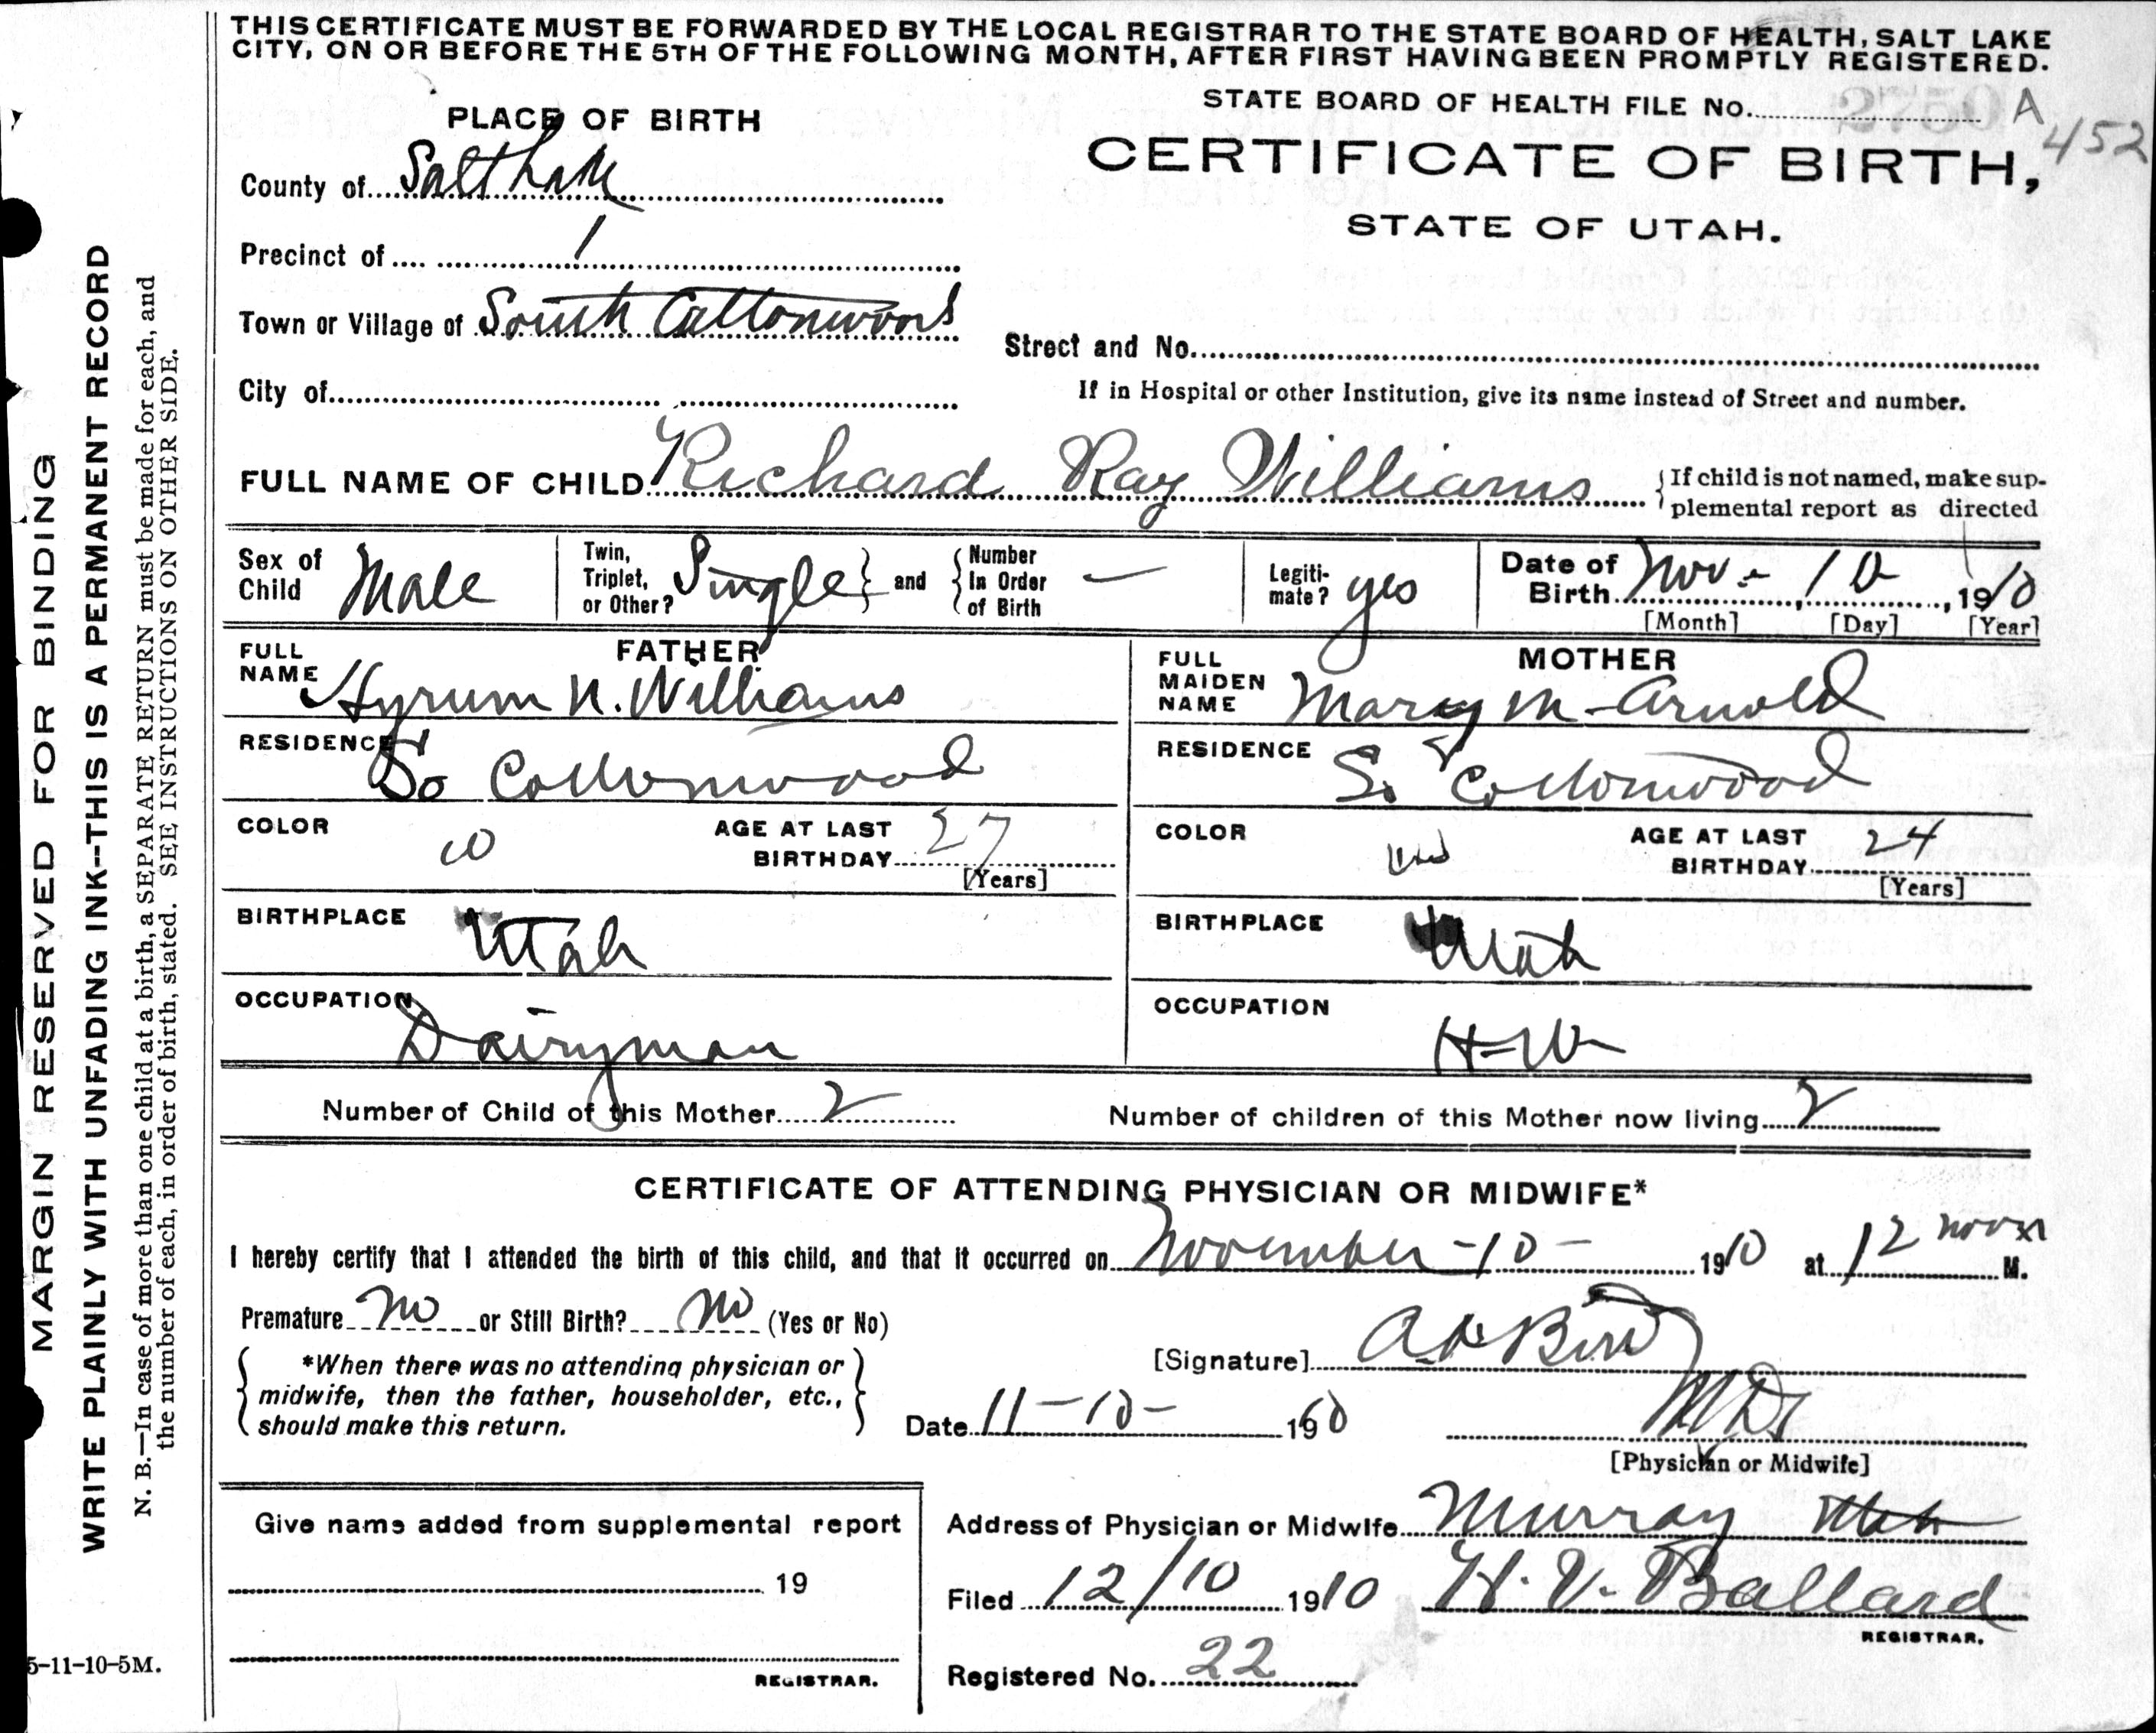 THIS CERTIFICATE MUST BE FORWARDED BY THE LOCAL REGISTRAR TO THE STATE BOARD OF HEALTH, SALT LAKE
CITY, ON OR BEFORE THE 5TH OF THE FOLLOWING MONTH, AFTER FIRST HAVING BEEN PROMPTLY REGISTERED.
STATE BOARD OF HEALTH FILE No. 2750 A
452
CERTIFICATE OF BIRTH,
STATE OF UTAH.
PLACE OF BIRTH
County of Salt Lake
Precinct of 1
Town or Village of South Cottonwood
Street and No.
City of
If in Hospital or other Institution, give its name instead of Street and number.
FULL NAME OF CHILD Richard Ray Williams
If child is not named, make sup-
plemental report as directed
Sex of Child Male
Twin, Triplet, or Other? Single and Number In Order of Birth —
Legiti-mate? yes
Date of Birth Nov. - 10, 1910
[Month] [Day] [Year]
FATHER
FULL NAME Hyrum N. Williams
RESIDENCE So Cottonwood
COLOR W AGE AT LAST BIRTHDAY 27
[Years]
BIRTHPLACE Utah
OCCUPATION Dairyman
MOTHER
FULL MAIDEN NAME Mary M - Arnold
RESIDENCE So Cottonwood
COLOR AGE AT LAST BIRTHDAY 24
[Years]
BIRTHPLACE Utah
OCCUPATION H-W
Number of Child of this Mother 2 Number of children of this Mother now living 2
CERTIFICATE OF ATTENDING PHYSICIAN OR MIDWIFE*
I hereby certify that I attended the birth of this child, and that it occurred on November -10- 1910 at 12 noon M.
Premature no or Still Birth? no (Yes or No)
*When there was no attending physician or
midwife, then the father, householder, etc.,
should make this return.
[Signature]
Date 11-10- 1910 MD
[Physician or Midwife]
Give name added from supplemental report
19
REGISTRAR.
Address of Physician or Midwife Murray Utah
Filed 12/10 1910 H. V. Ballard
REGISTRAR.
Registered No. 22
MARGIN RESERVED FOR BINDING
WRITE PLAINLY WITH UNFADING INK--THIS IS A PERMANENT RECORD
N. B.—In case of more than one child at a birth, a SEPARATE RETURN must be made for each, and
the number of each, in order of birth, stated. SEE INSTRUCTIONS ON OTHER SIDE.
5-11-10-5M.